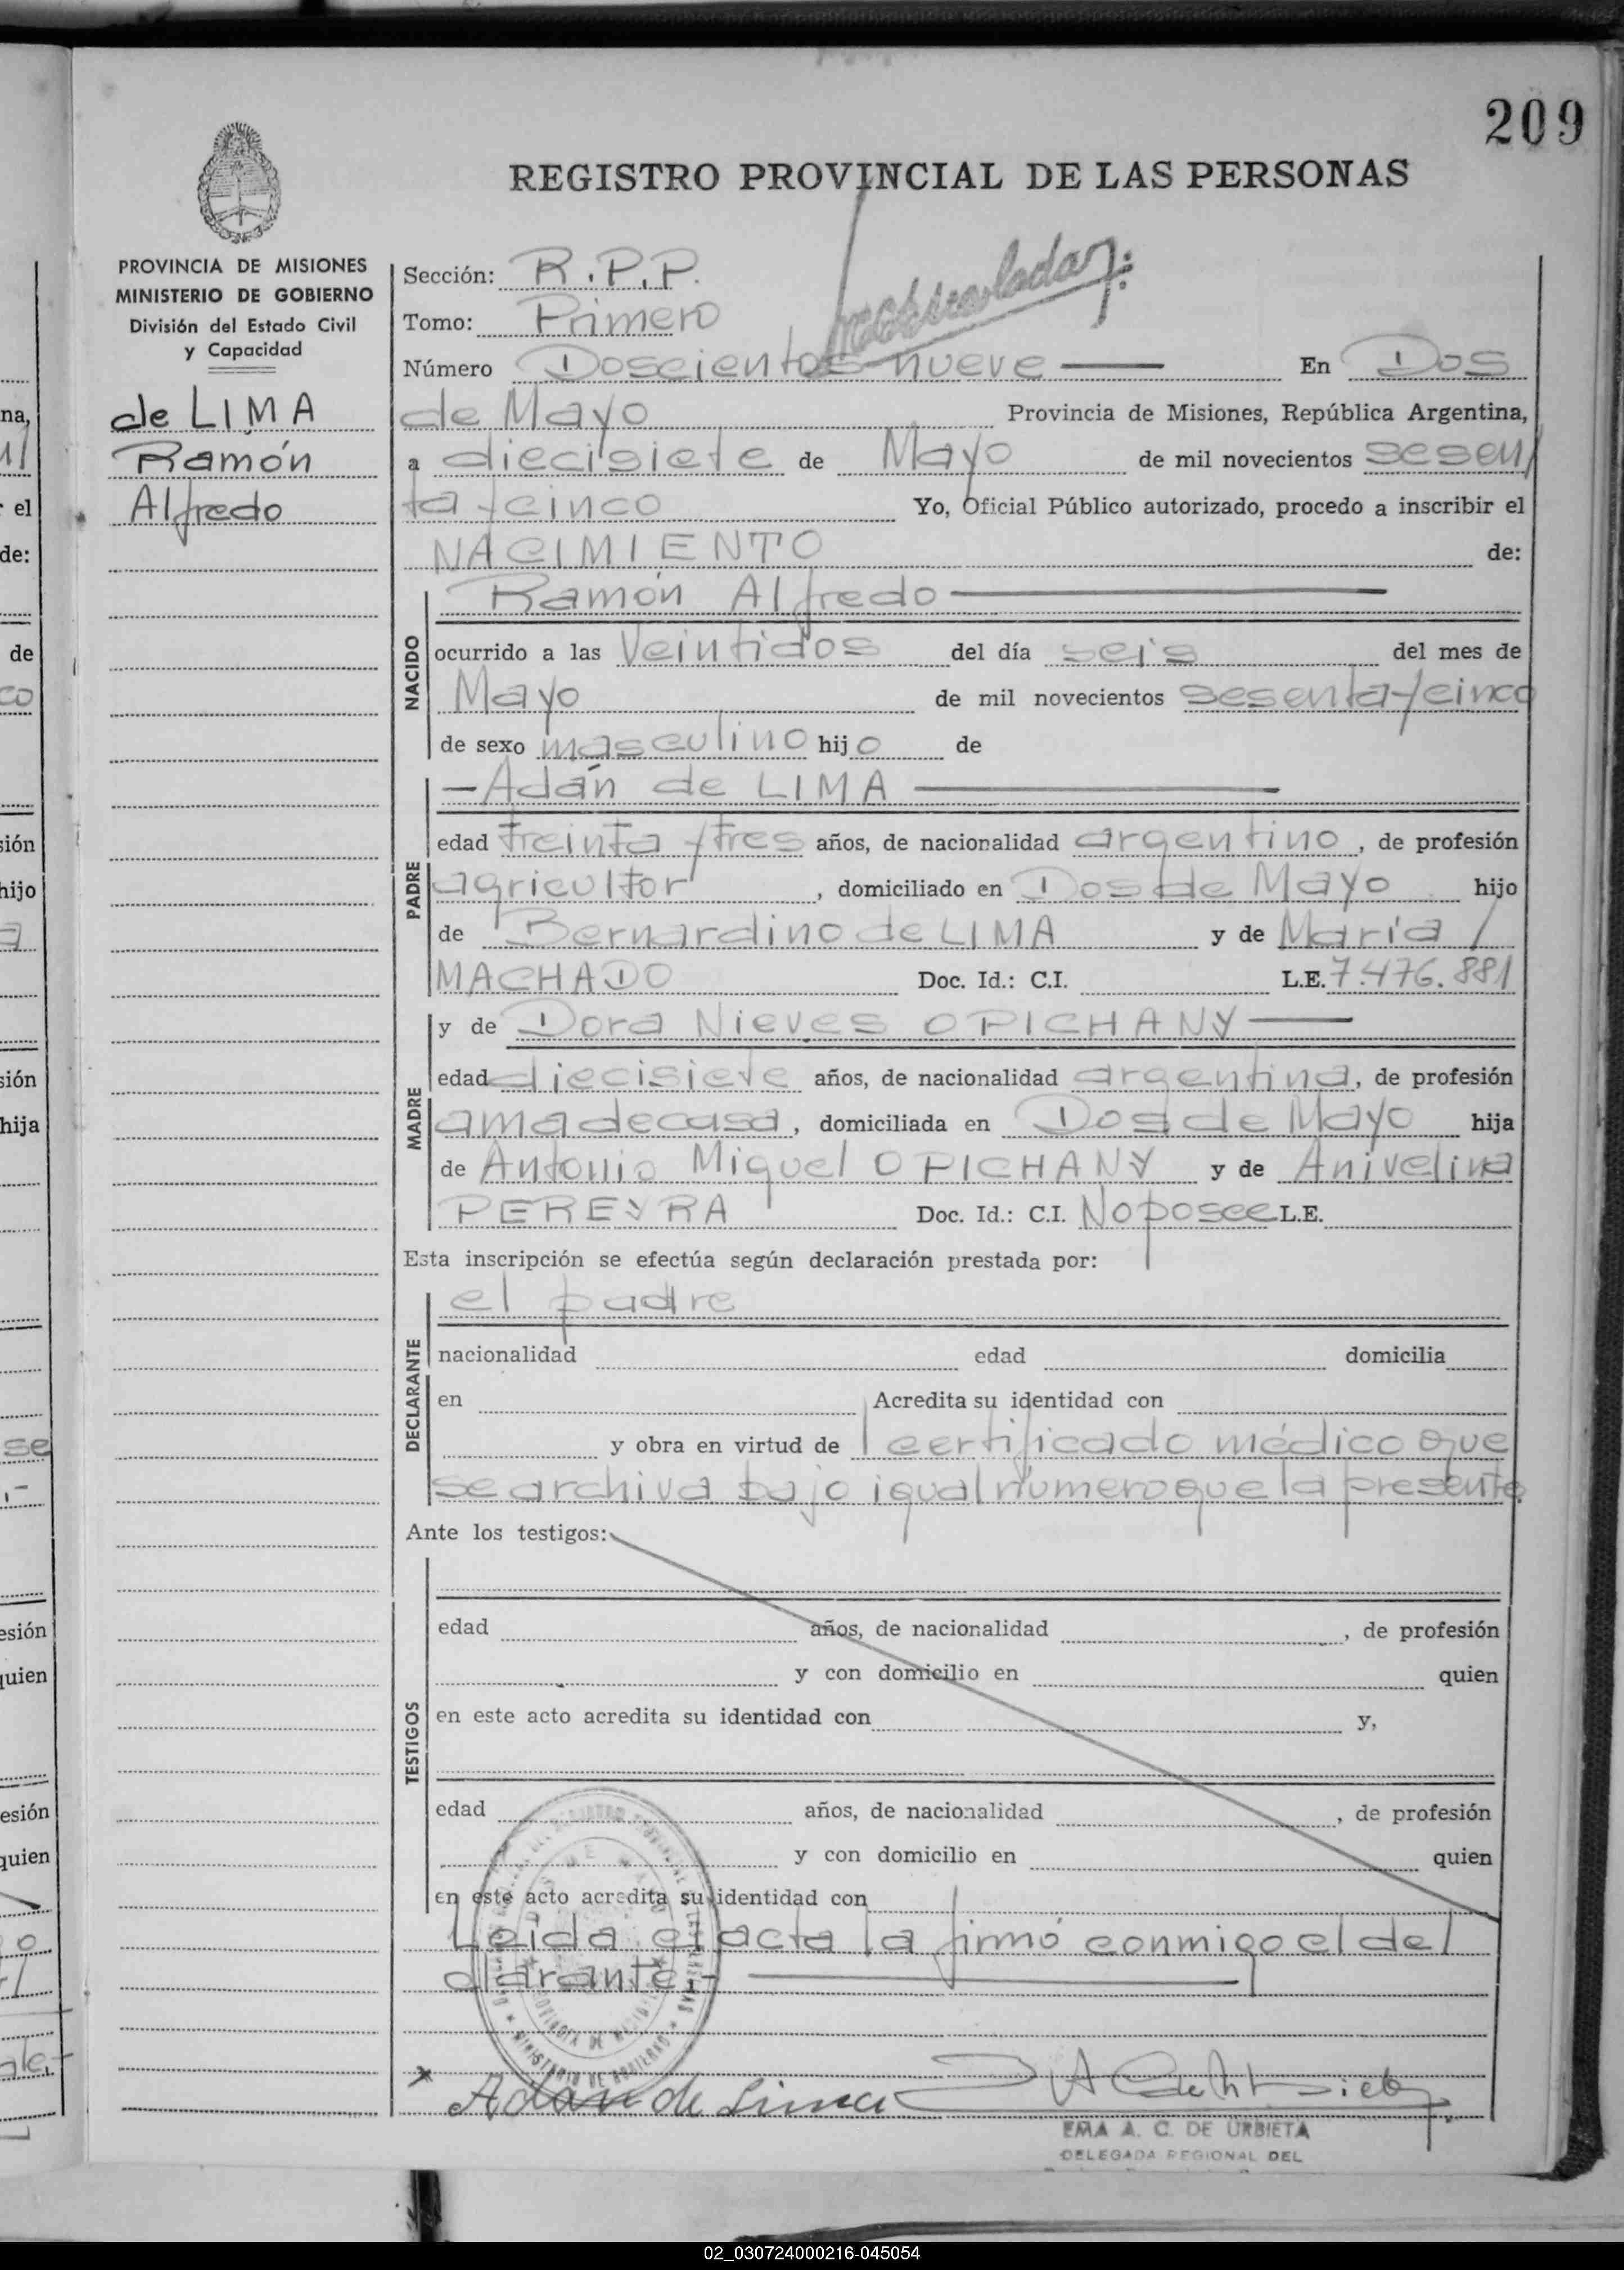 209
REGISTRO PROVINCIAL DE LAS PERSONAS
PROVINCIA DE MISIONES
MINISTERIO DE GOBIERNO
División del Estado Civil
y Capacidad
de LIMA
Ramón
Alfredo
Sección: R.P.P.
Tomo: Primero
Número Doscientos nueve En Dos
de Mayo Provincia de Misiones, República Argentina,
a diecisiete de Mayo de mil novecientos sesen/
ta y cinco Yo, Oficial Público autorizado, procedo a inscribir el
NACIMIENTO de:
NACIDO
Ramón Alfredo
ocurrido a las Veintidos del día seis del mes de
Mayo de mil novecientos sesenta y cinco
de sexo masculino hijo de
PADRE
— Adán de LIMA
edad treinta y tres años, de nacionalidad argentino, de profesión
agricultor, domiciliado en Dos de Mayo hijo
de Bernardino de LIMA y de María /
MACHADO Doc. Id.: C.I. L.E. 7.476.881
MADRE
y de Dora Nieves OPICHANY
edad diecisiete años, de nacionalidad argentina, de profesión
ama de casa, domiciliada en Dos de Mayo hija
de Antonio Miguel OPICHANY y de Anivelina
PEREYRA Doc. Id.: C.I. No posee L.E.
Esta inscripción se efectúa según declaración prestada por:
DECLARANTE
el padre
nacionalidad edad domicilia
en Acredita su identidad con
y obra en virtud de certificado médico que
se archiva bajo igual número que la presente
Ante los testigos:
TESTIGOS
edad años, de nacionalidad , de profesión
y con domicilio en quien
en este acto acredita su identidad con y,
edad años, de nacionalidad , de profesión
y con domicilio en quien
en este acto acredita su identidad con
Leída el acta la firmó conmigo el del
clarante.-
x Adan de Lima
EMA A. C. DE URBIETA
DELEGADA REGIONAL DEL
02_030724000216-045054